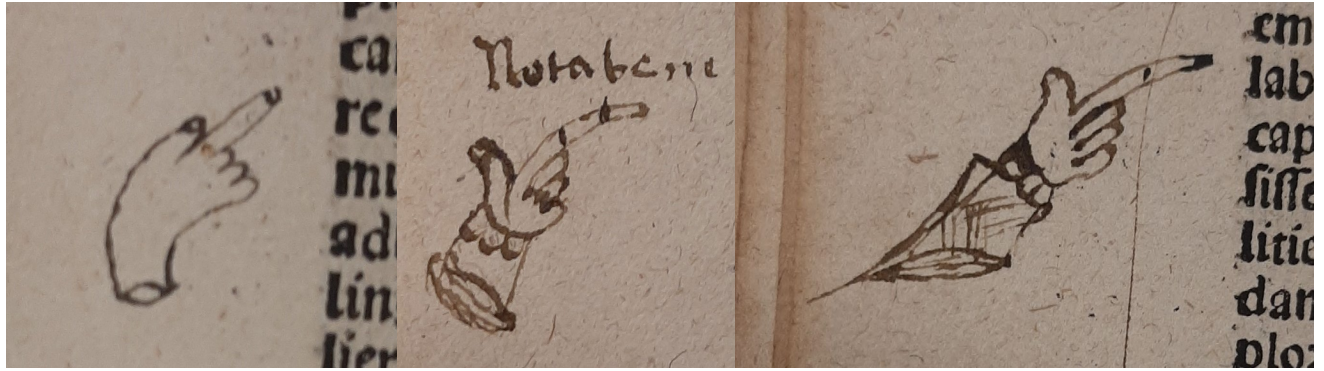 ca
rec
mu
ad
lin
lier
Nota bene
em
lab
cap
ſiſſe
litie
dan
ploz